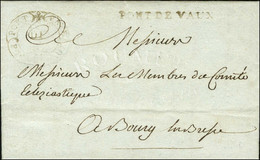 PONT DE VAUX
A Messieurs
Messieurs Les Membres du Comité
Eclesiastique
A Bourg en Bresse